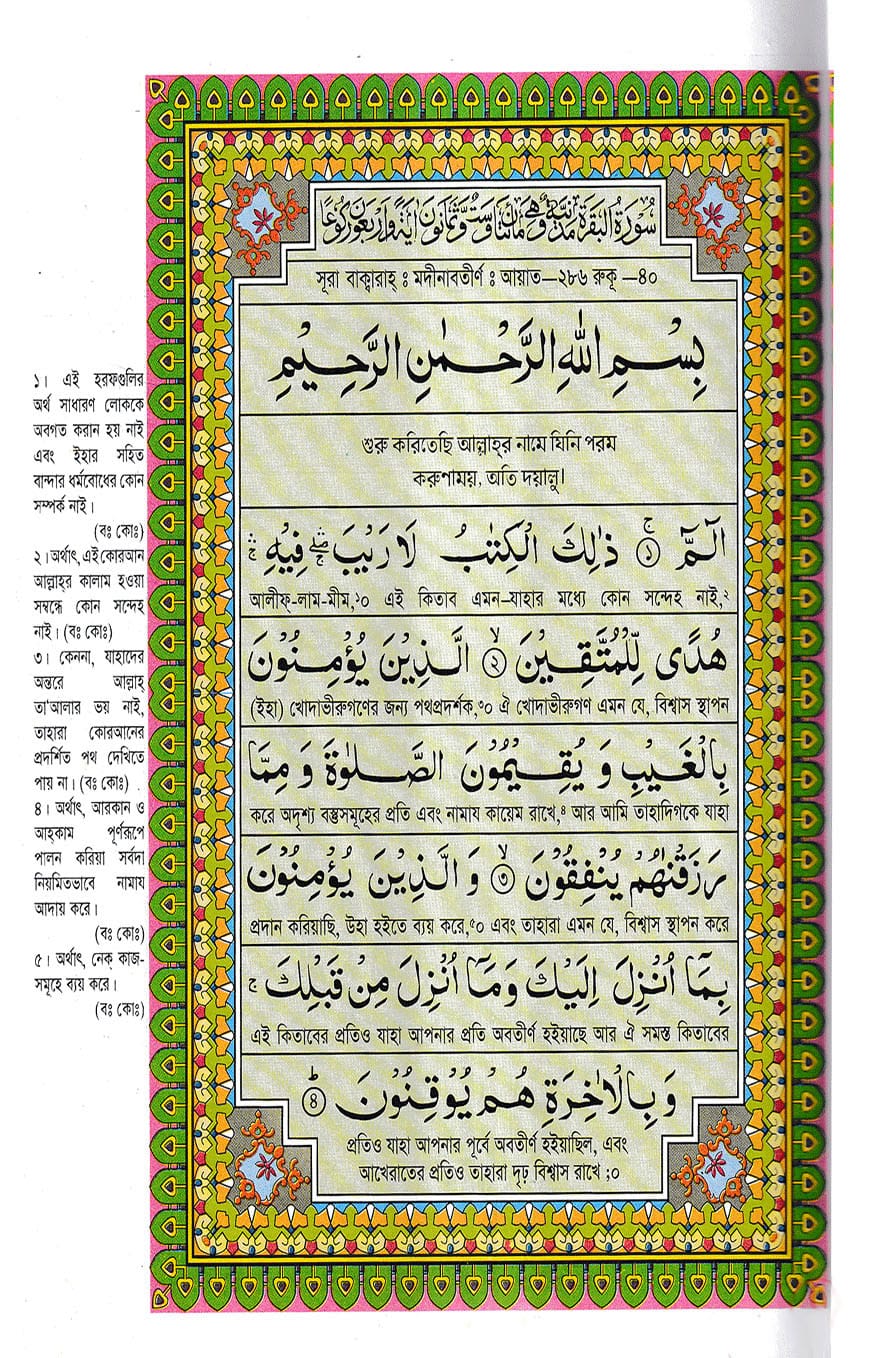 سُوْرَةُ الْبَقَرَةِ مَدَنِيَّةٌ وَّهِيَ مِائَتَانِ وَسِتٌّ وَّثَمَانُوْنَ اٰيَةً وَّاَرْبَعُوْنَ رُكُوْعًا
সূরা বাক্বারাহ্ ঃ মদীনাবতীর্ণ ঃ আয়াত—২৮৬ রুকূ —৪০
بِسْمِ اللهِ الرَّحْمٰنِ الرَّحِيْمِ
শুরু করিতেছি আল্লাহ্‌র নামে যিনি পরম
করুণাময়, অতি দয়ালু।
الٓمّٓ ۚ ﴿۱﴾ ذٰلِكَ الْكِتٰبُ لَا رَيْبَ ۛ ۖ ۚ فِيْهِ ۛ ۚ
আলীফ্-লাম-মীম,১০ এই কিতাব এমন—যাহার মধ্যে কোন সন্দেহ নাই,২
هُدًى لِّلْمُتَّقِيْنَ ۙ ﴿۲﴾ الَّذِيْنَ يُؤْمِنُوْنَ
(ইহা) খোদাভীরুগণের জন্য পথপ্রদর্শক,৩০ ঐ খোদাভীরুগণ এমন যে, বিশ্বাস স্থাপন
بِالْغَيْبِ وَ يُقِيْمُوْنَ الصَّلٰوةَ وَ مِمَّا
করে অদৃশ্য বস্তুসমূহের প্রতি এবং নামায কায়েম রাখে,৪ আর আমি তাহাদিগকে যাহা
رَزَقْنٰهُمْ يُنْفِقُوْنَ ۙ ﴿۳﴾ وَ الَّذِيْنَ يُؤْمِنُوْنَ
প্রদান করিয়াছি, উহা হইতে ব্যয় করে,৫০ এবং তাহারা এমন যে, বিশ্বাস স্থাপন করে
بِمَآ اُنْزِلَ اِلَيْكَ وَمَآ اُنْزِلَ مِنْ قَبْلِكَ ۚ
এই কিতাবের প্রতিও যাহা আপনার প্রতি অবতীর্ণ হইয়াছে আর ঐ সমস্ত কিতাবের
وَ بِالْاٰخِرَةِ هُمْ يُوْقِنُوْنَ ؕ ﴿۴﴾
প্রতিও যাহা আপনার পূর্বে অবতীর্ণ হইয়াছিল, এবং
আখেরাতের প্রতিও তাহারা দৃঢ় বিশ্বাস রাখে ;০
১। এই হরফগুলির
অর্থ সাধারণ লোককে
অবগত করান হয় নাই
এবং ইহার সহিত
বান্দার ধর্মবোধের কোন
সম্পর্ক নাই।
(বঃ কোঃ)
২। অর্থাৎ, এই কোরআন
আল্লাহ্‌র কালাম হওয়া
সম্বন্ধে কোন সন্দেহ
নাই। (বঃ কোঃ)
৩। কেননা, যাহাদের
অন্তরে আল্লাহ্
তা'আলার ভয় নাই,
তাহারা কোরআনের
প্রদর্শিত পথ দেখিতে
পায় না। (বঃ কোঃ)
৪। অর্থাৎ, আরকান ও
আহ্‌কাম পূর্ণরূপে
পালন করিয়া সর্বদা
নিয়মিতভাবে নামায
আদায় করে।
(বঃ কোঃ)
৫। অর্থাৎ, নেক্ কাজ-
সমূহে ব্যয় করে।
(বঃ কোঃ)